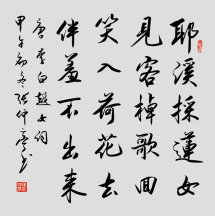 耶溪採蓮女
見客棹歌回
笑入荷花去
佯羞不出来
唐李白越女词
甲午初冬张仲亭书